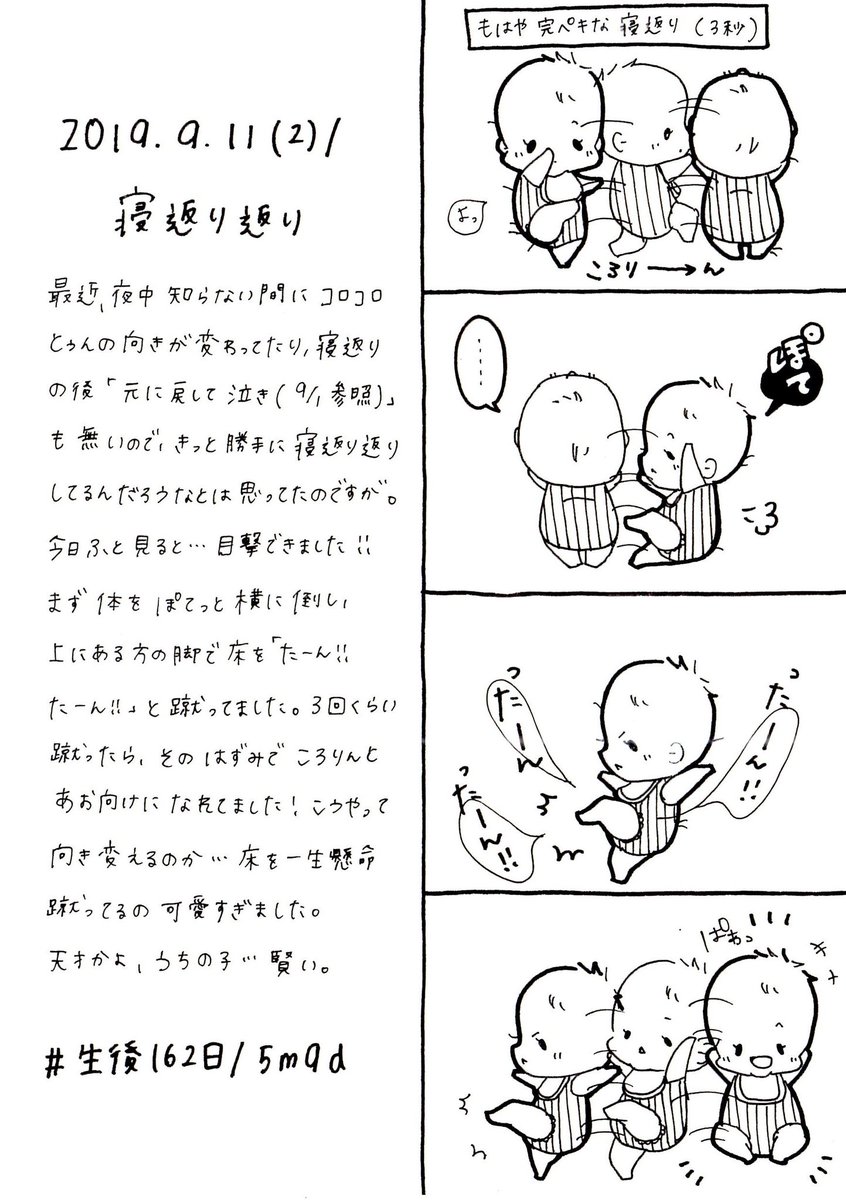 2019.9.11(2)/
寝返り返り
最近、夜中 知らない間に コロコロ
とぅんの向きが 変わってたり、寝返り
の後「元に戻して 泣き(9/1 参照)」
も 無いので、きっと 勝手に 寝返り返り
してるんだろうなとは 思ってたのですが。
今日ふと見ると… 目撃できました!!
まず 体を ぽてっと 横に 倒し
上にある方の脚で 床を「たーん!!
たーん!!」と 蹴ってました。3回くらい
蹴ったら、その はずみで ころりんと
あお向けに なれてました! こうやって
向き変えるのか… 床を一生懸命
蹴ってるの 可愛すぎました。
天才かよ、うちの子… 賢い。
#生後162日/5m9d
もはや 完ペキな 寝返り (3秒)
よっ
ころりーーん
……
ぽて
ころ
たーんっ
たーん!!っ
たーん!!っ
ぱあっ